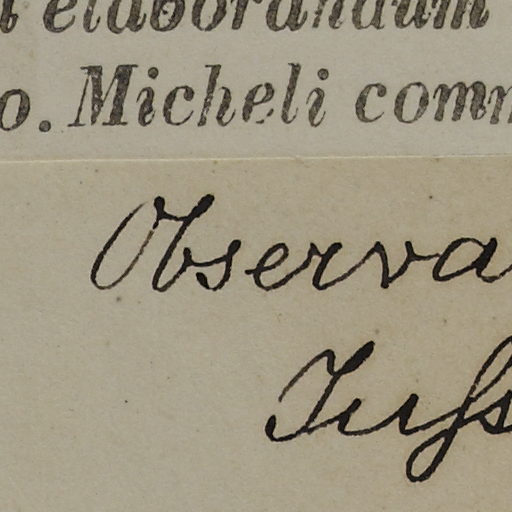 elaborandum
o. Micheli comm
Observa
Juss